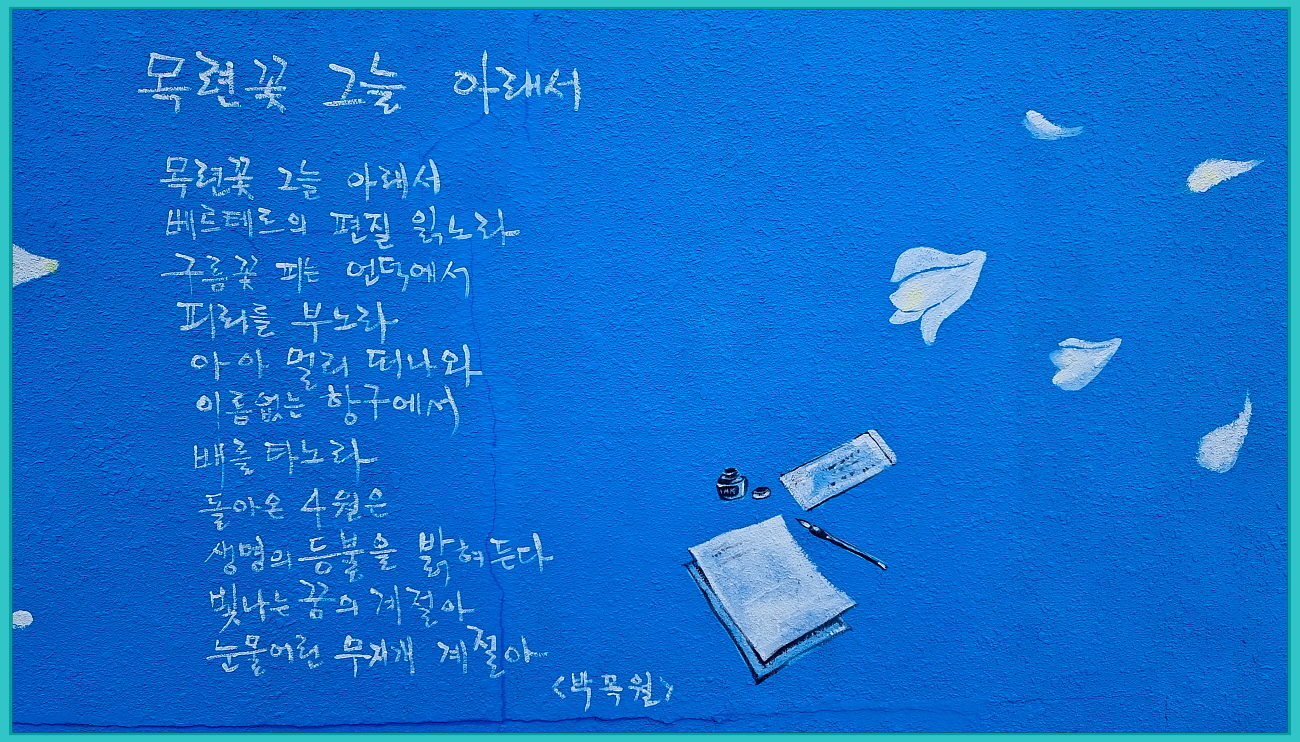 목련꽃 그늘 아래서
목련꽃 그늘 아래서
베르테르의 편질 읽노라
구름꽃 피는 언덕에서
피리를 부노라
아 아 멀리 떠나와
이름없는 항구에서
배를 타노라
돌아온 4월은
생명의 등불을 밝혀든다
빛나는 꿈의 계절아
눈물어린 무지개 계절아
<박목월>
INK